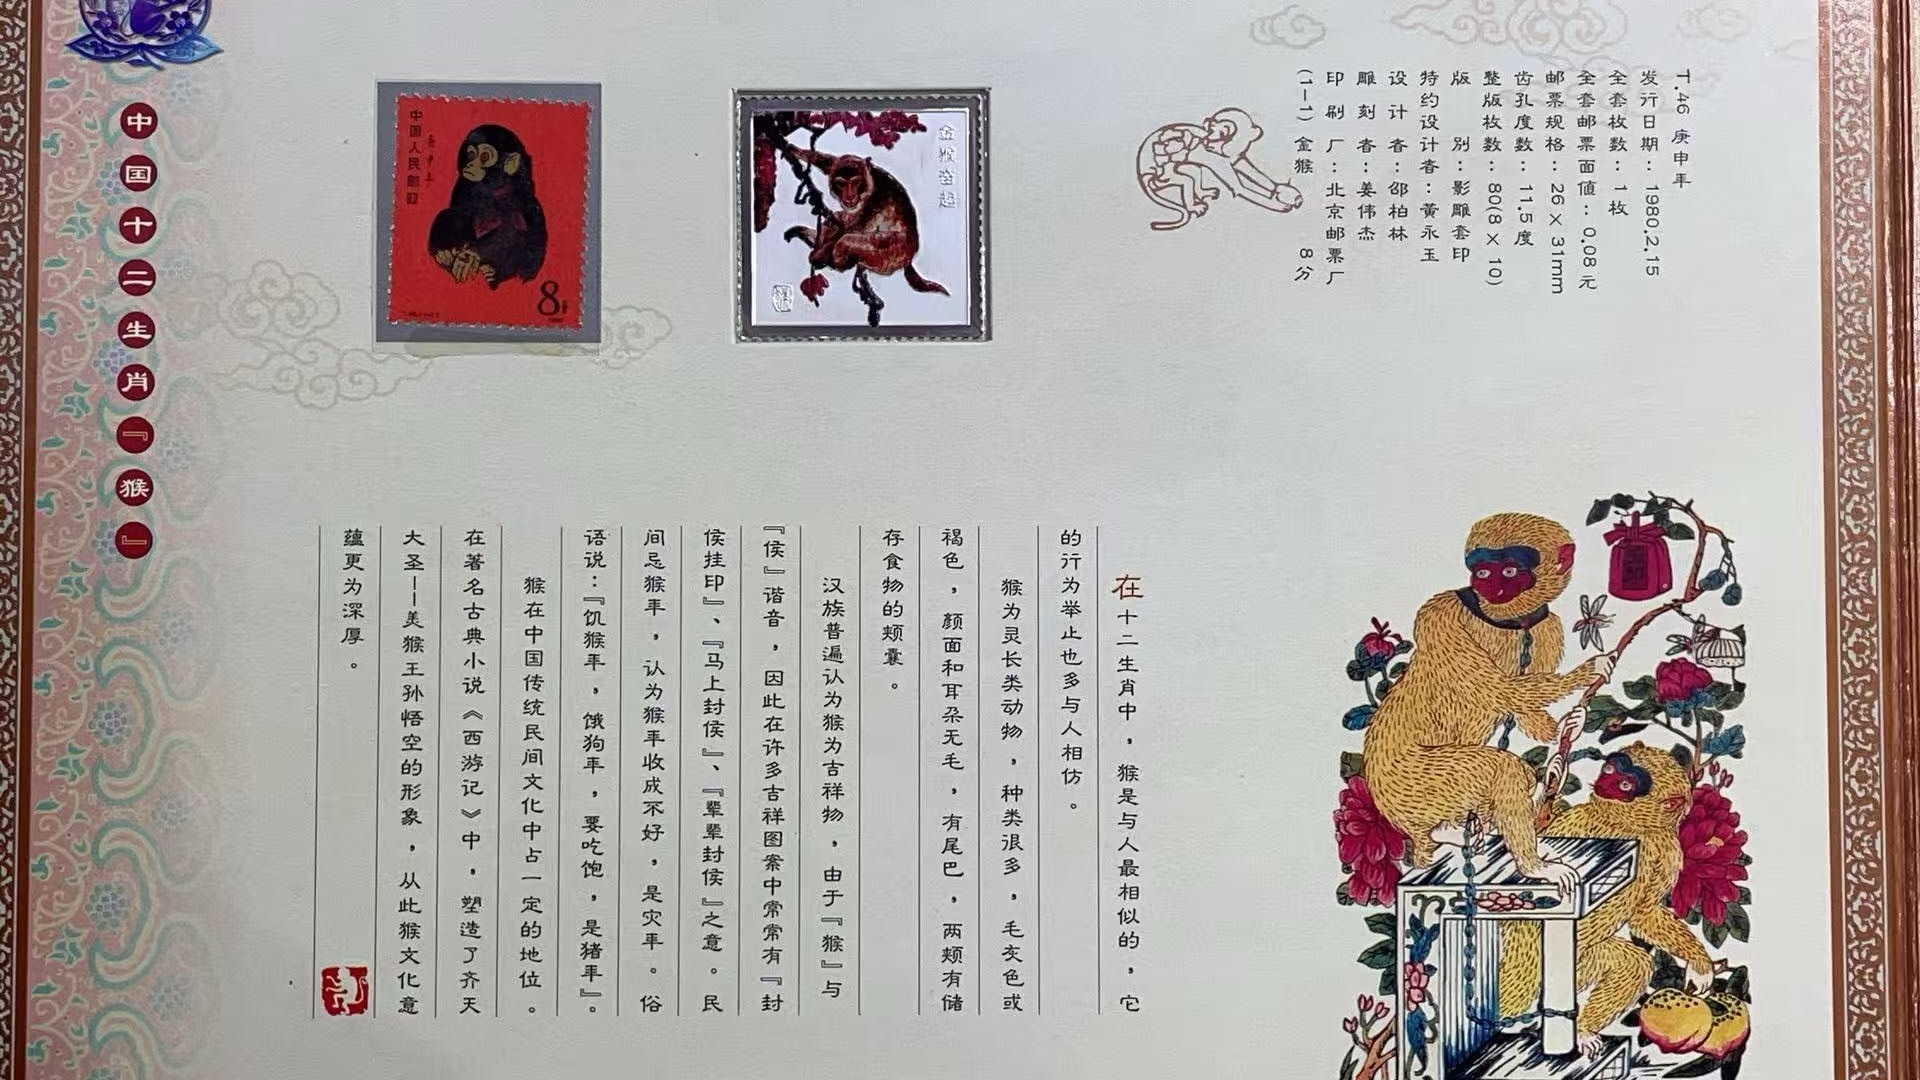 中国十二生肖『猴』
中国人民邮政
庚申年
8分
金猴奋起
T.46 庚申年
发行日期：1980.2.15
全套枚数：1枚
全套邮票面值：0.08元
邮票规格：26×31mm
齿孔度数：11.5度
整版枚数：80(8×10)
版别：影雕套印
特约设计者：黄永玉
设计者：邵柏林
雕刻者：姜伟杰
印刷厂：北京邮票厂
(1-1)金猴 8分
在十二生肖中，猴是与人最相似的，它
的行为举止也多与人相仿。
猴为灵长类动物，种类很多，毛灰色或
褐色，颜面和耳朵无毛，有尾巴，两颊有储
存食物的颊囊。
汉族普遍认为猴为吉祥物，由于『猴』与
『侯』谐音，因此在许多吉祥图案中常常有『封
侯挂印』、『马上封侯』、『辈辈封侯』之意。民
间忌猴年，认为猴年收成不好，是灾年。俗
语说：『饥猴年，饿狗年，要吃饱，是猪年』。
猴在中国传统民间文化中占一定的地位。
在著名古典小说《西游记》中，塑造了齐天
大圣--美猴王孙悟空的形象，从此猴文化意
蕴更为深厚。